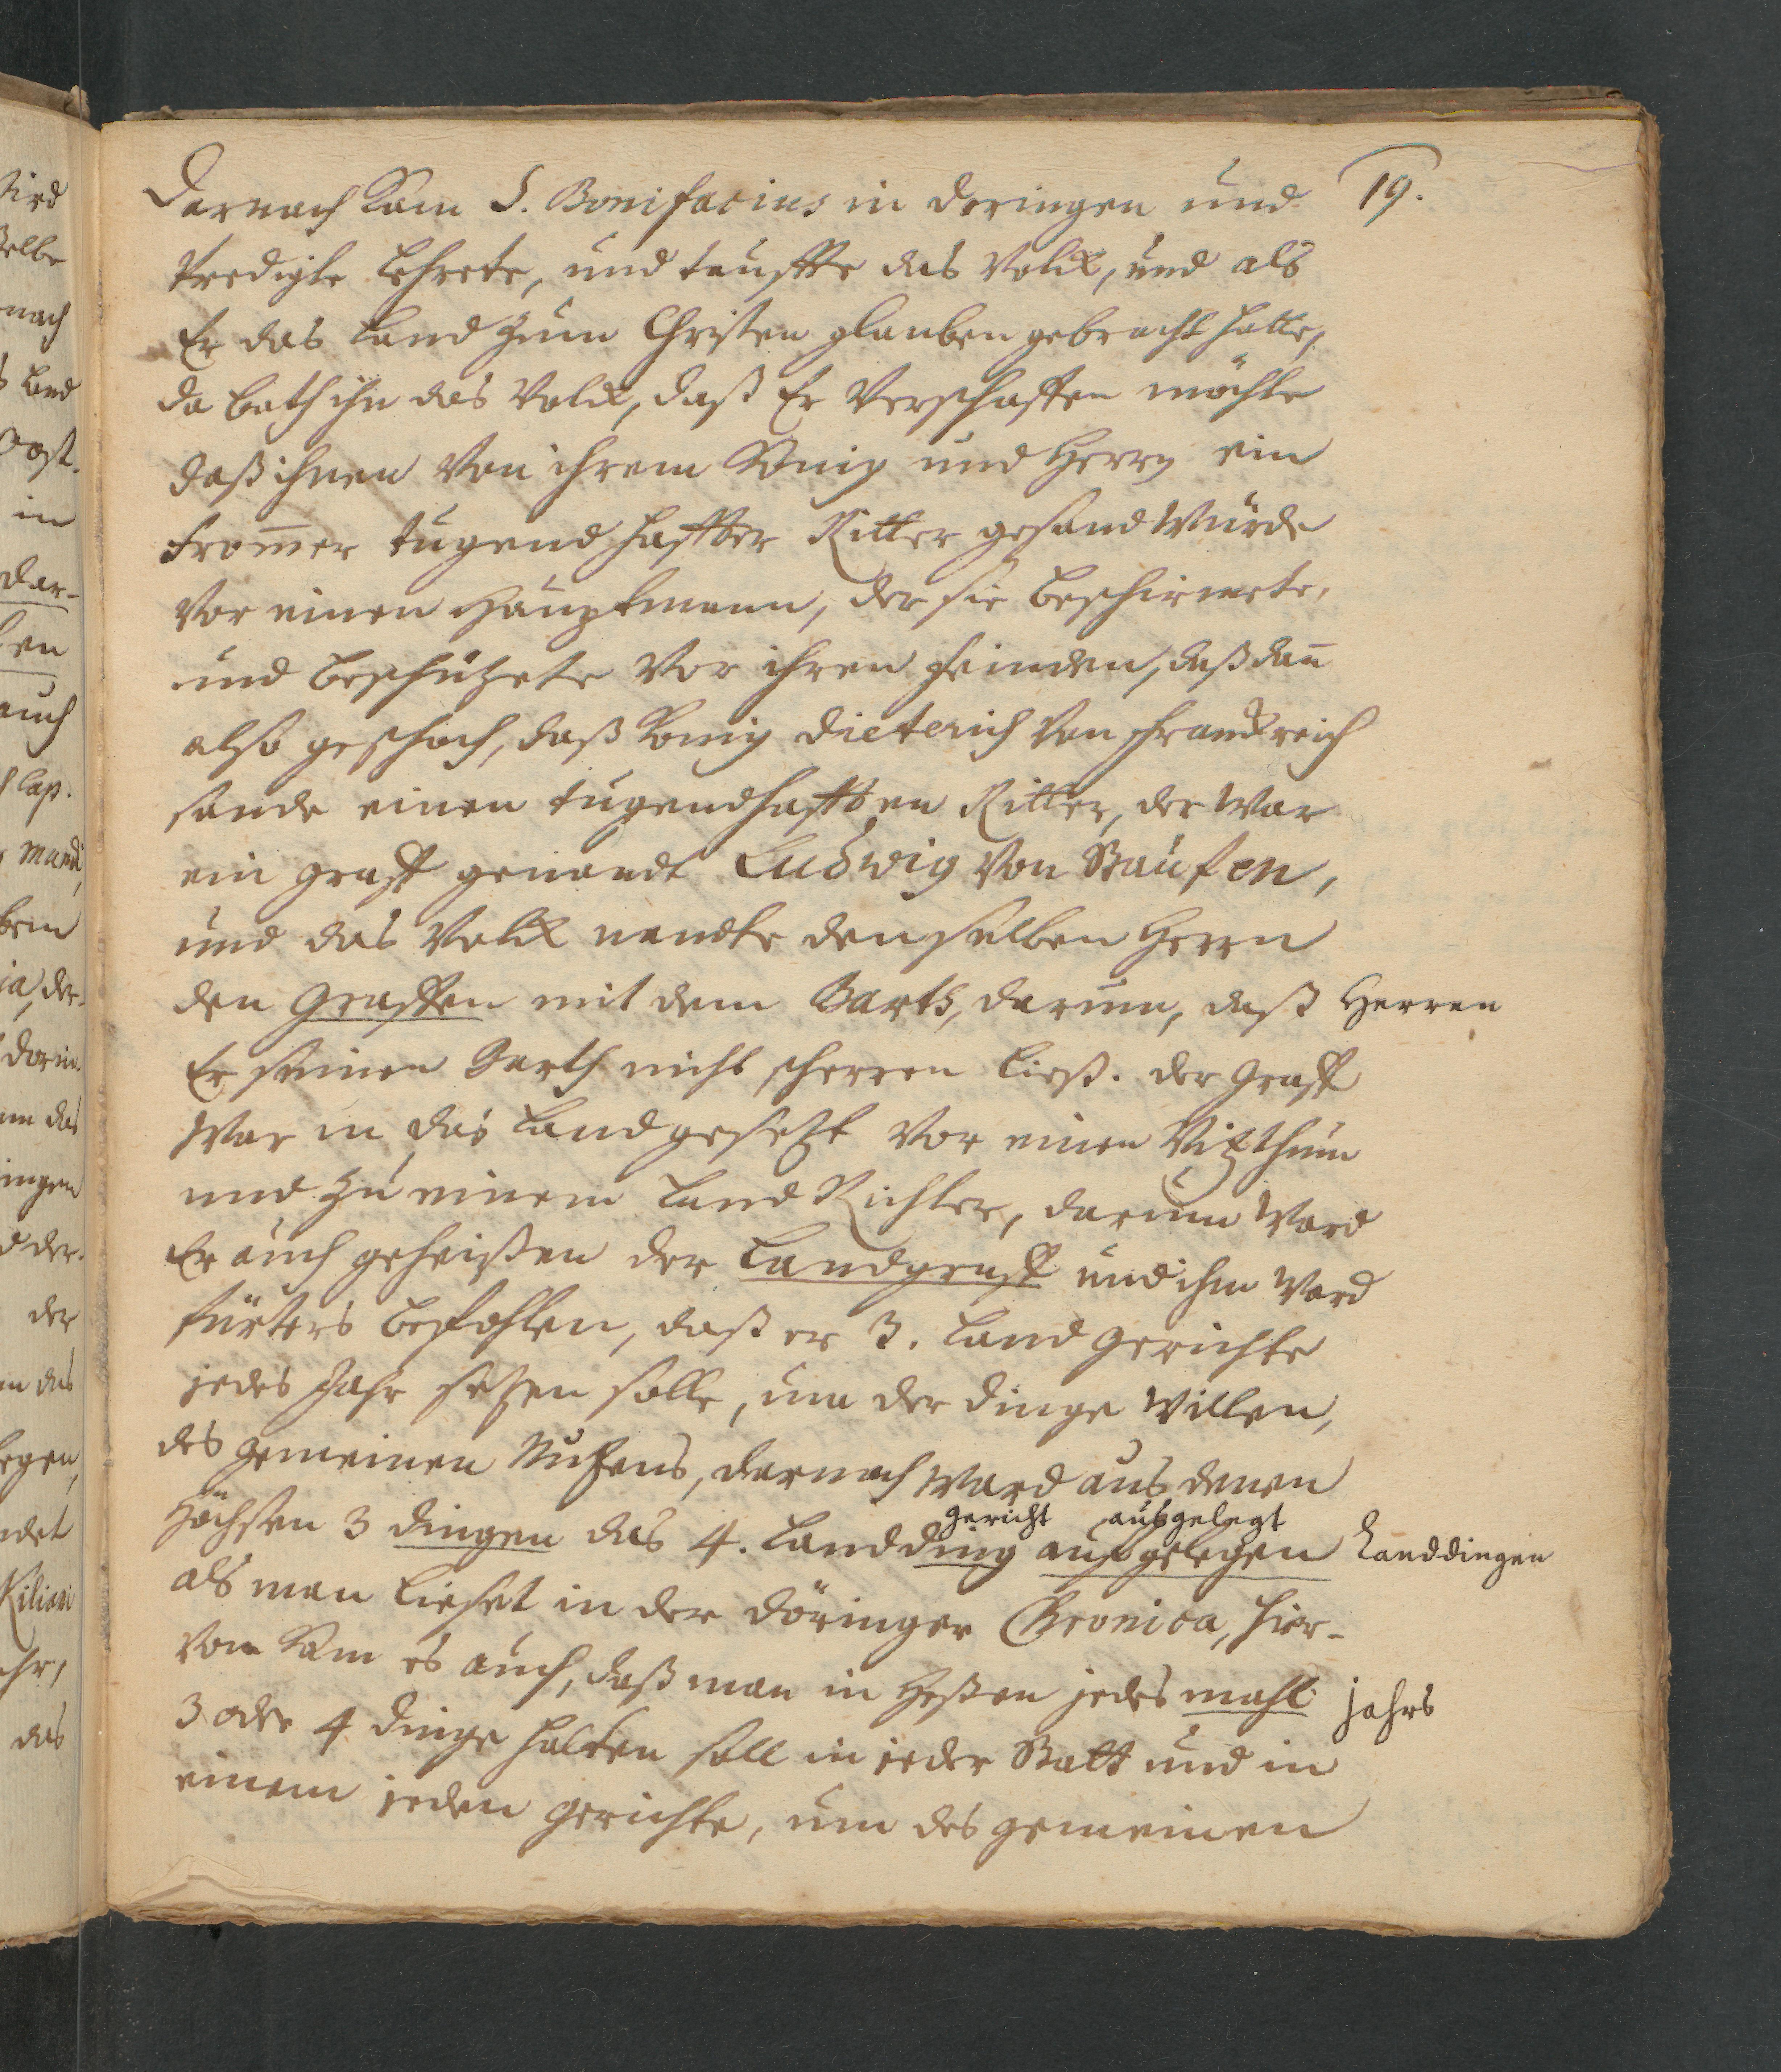 19.
Darnach kam S. Bonifacius in Doringen und
Predigte Lehrete, und tauffte das Volck, und als
Er das Land zum Christen glauben gebracht hatte,
da bath ihn das Volck, daß Er Verschaffen möchte
daß ihnen Von ihrem König und Herrn ein
frommer tugendhaffter Ritter gesand würde
Vor einen Hauptmann, der sie beschirmete,
und beschützete Vor ihren feinden, daß dann
also geschach, daß König Dieterich Von Franckreich
sande einen tugendhafften Ritter, der war
ein graff genandt Ludwig Von Staufen,
und das Volck nandte denselben Herrn
den Graffen mit dem Barth, darum, daß Herren
Er seinen Barth nicht scherren ließ. der Graff
War in das Land gesetzt Vor einen Vitzthum
und zu einem Land Richter, darum Ward
Er auch geheißen der Landgraff und ihm Ward
fürters befohlen, daß er 3. Land gerichte
jedes Jahr setzen solle, um der dinge Willen,
des gemeinen Nutzens, darnach ward aus denen
gericht ausgelegt
höchsten 3 dingen das 4. Landding aufgelegen Landdingen
als man lieset in der Döringer Chronica, hier-
von kam es auch, daß man in Heßen jedes mahl jahrs
3 oder 4 dinge halten soll in jeder Statt und in
einem jeden gerichte, um des gemeinen
sird
selbe
nach
Land
in
dar-
en
auch
cap.
mundi
der
das
ingen
der
das
Kiliani
das